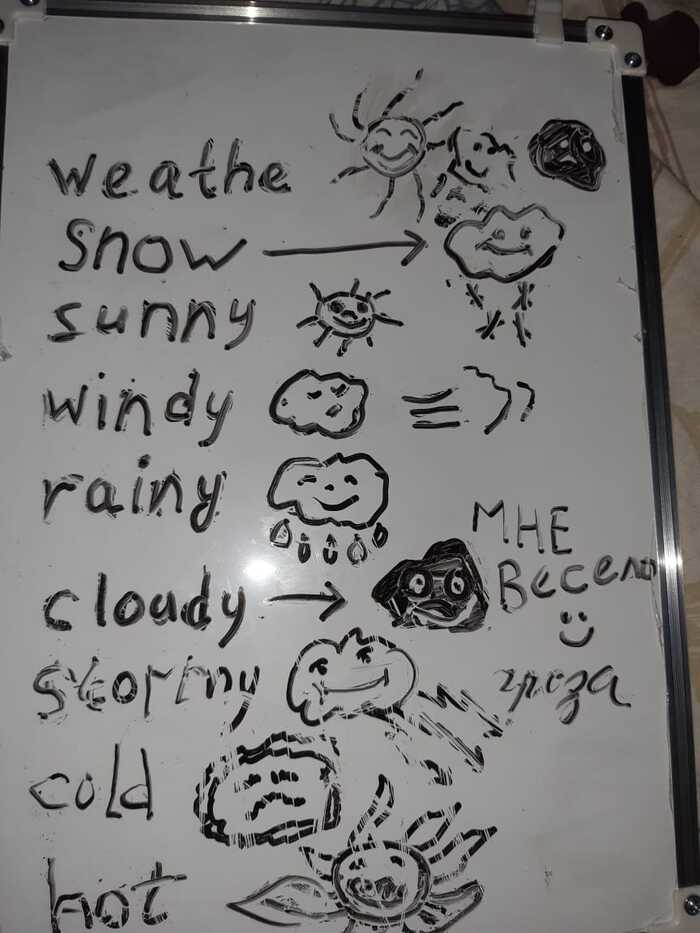 weathe
snow
sunny
windy
rainy
мне
весело
cloudy
stormy
гроза
cold
hot